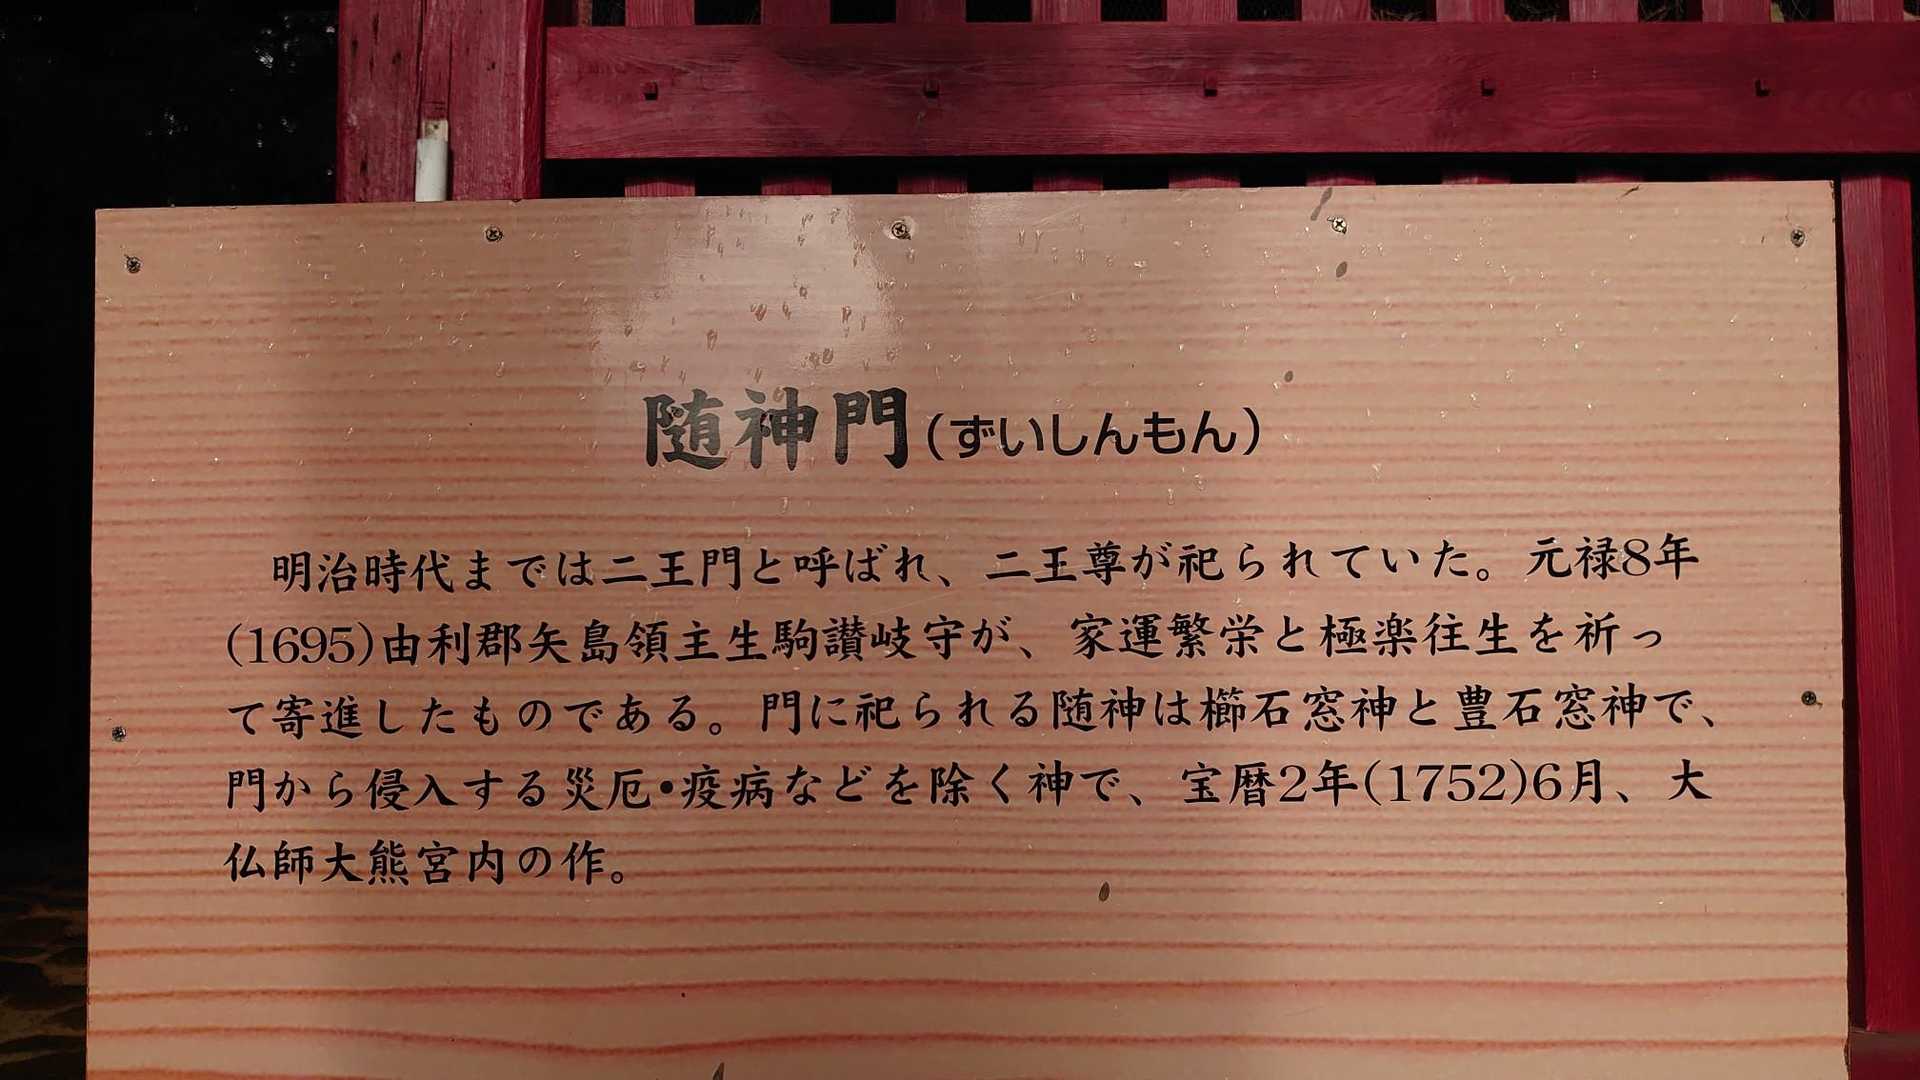 随神門(ずいしんもん)
明治時代までは二王門と呼ばれ、二王尊が祀られていた。元禄8年
(1695)由利郡矢島領主生駒讃岐守が、家運繁栄と極楽往生を祈っ
て寄進したものである。門に祀られる随神は櫛石窓神と豊石窓神で、
門から侵入する災厄•疫病などを除く神で、宝暦2年(1752)6月、大
仏師大熊宮内の作。